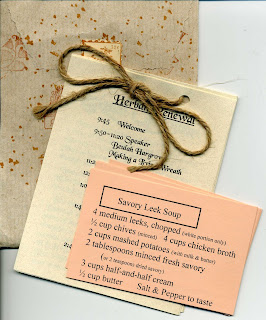 Herbal Renewal
9:45 Welcome
9:50-11:00 Speaker
Beulah Hargrove
Making a Wreath
Savory Leek Soup
4 medium leeks, chopped (white portion only)
½ cup chives (minced) 4 cups chicken broth
2 cups mashed potatoes (with milk & butter)
2 tablespoons minced fresh savory
(or 2 teaspoons dried savory)
3 cups half-and-half cream
½ cup butter Salt & Pepper to taste